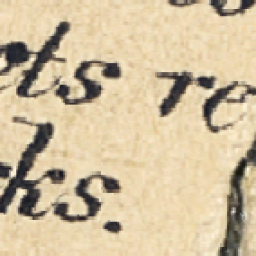 ets re
rks.